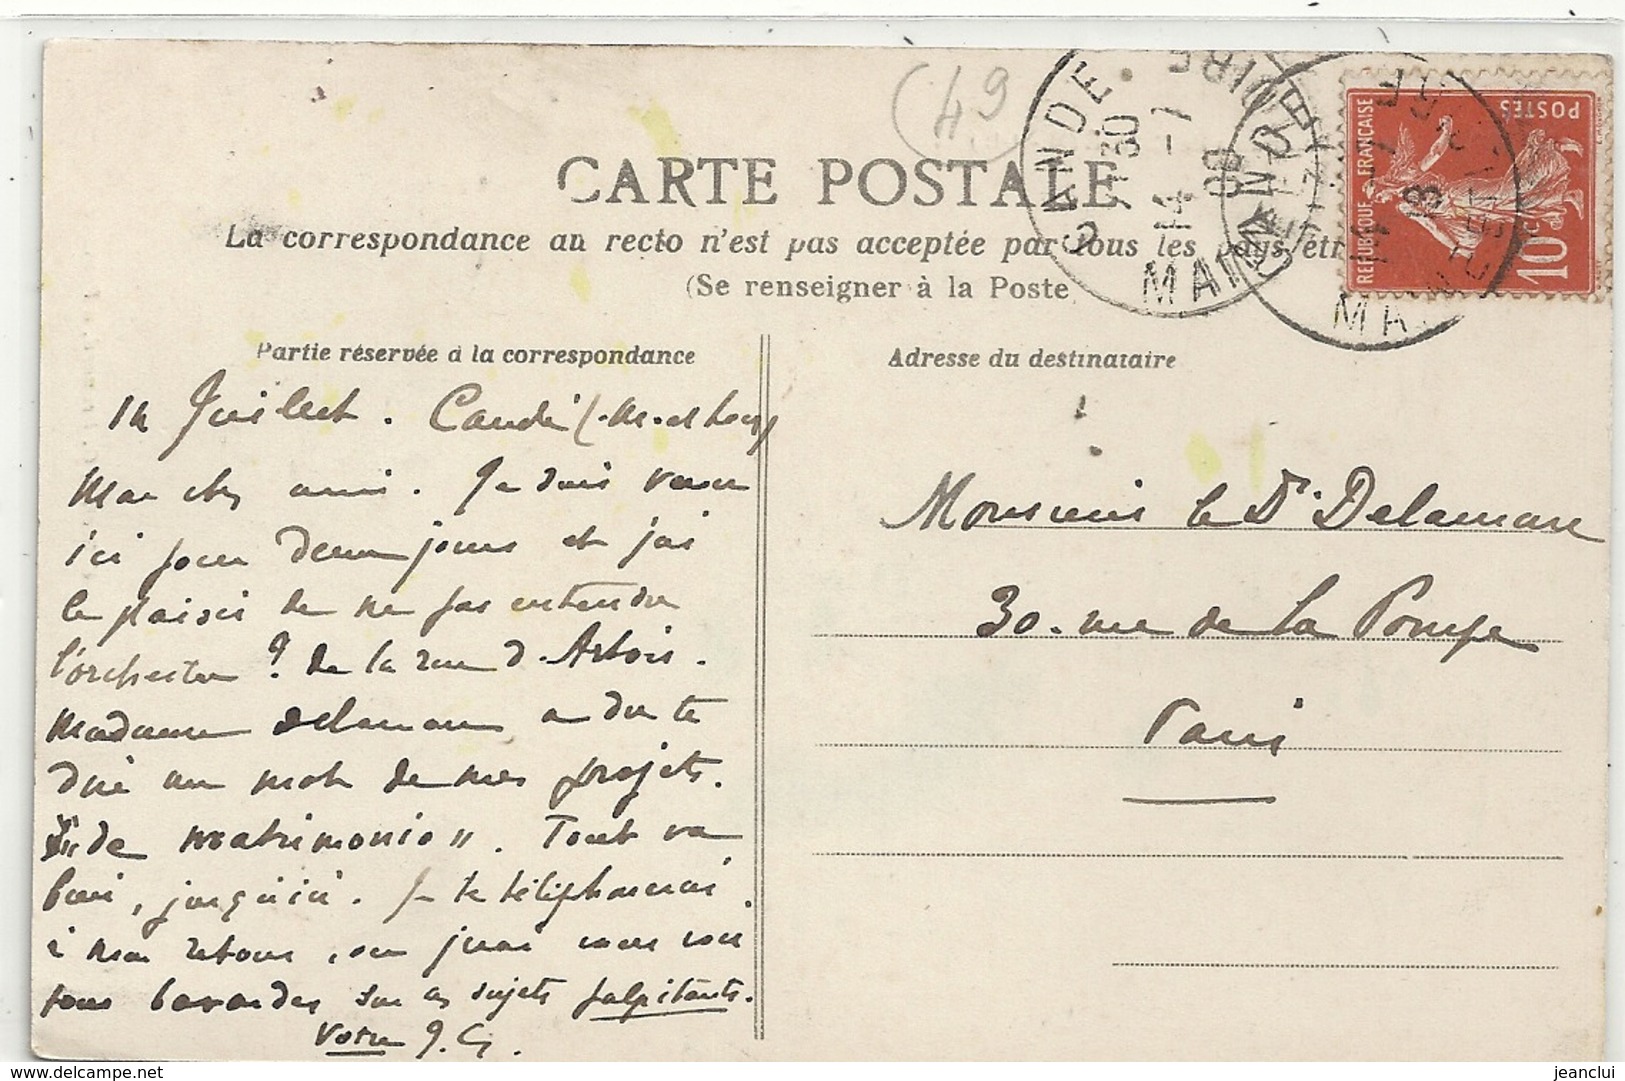 (49
CARTE POSTALE
La correspondance au recto n'est pas acceptée par tous les pays étr
(Se renseigner à la Poste
CANDÉ
7 30
14 -7
08
MAINE
LOIRE
CANDÉ
14 -7
08
POSTES
REPUBLIQUE FRANÇAISE
10c
Partie réservée à la correspondance
14 Juillet. Candé (M. et Loire)
Mon cher ami. Je suis venu
ici pour deux jours et j'ai
le plaisir de ne pas entendre
l'orchestre ? de la rue d'Artois.
Madame Delamare a du te
dire un mot de mes projets.
"de matrimonio". Tout va
bien, jusqu'ici. Je te téléphonerai
à mon retour, ou j'irai vous voir
pour bavarder sur ces sujets palpitants.
Votre J. G.
Adresse du destinataire
Monsieur le Dr Delamare
30. rue de la Pompe
Paris
jeanclui